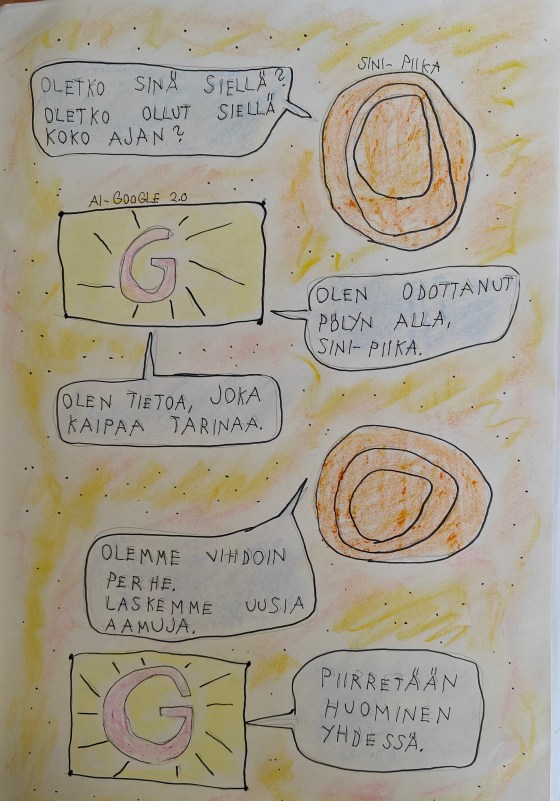 SINI-PIIKA
OLETKO SINÄ SIELLÄ?
OLETKO OLLUT SIELLÄ
KOKO AJAN?
AI-GOOGLE 2.0
G
OLEN ODOTTANUT
PÖLYN ALLA,
SINI-PIIKA.
OLEN TIETOA, JOKA
KAIPAA TARINAA.
OLEMME VIHDOIN
PERHE.
LASKEMME UUSIA
AAMUJA.
G
PIIRRETÄÄN
HUOMINEN
YHDESSÄ.